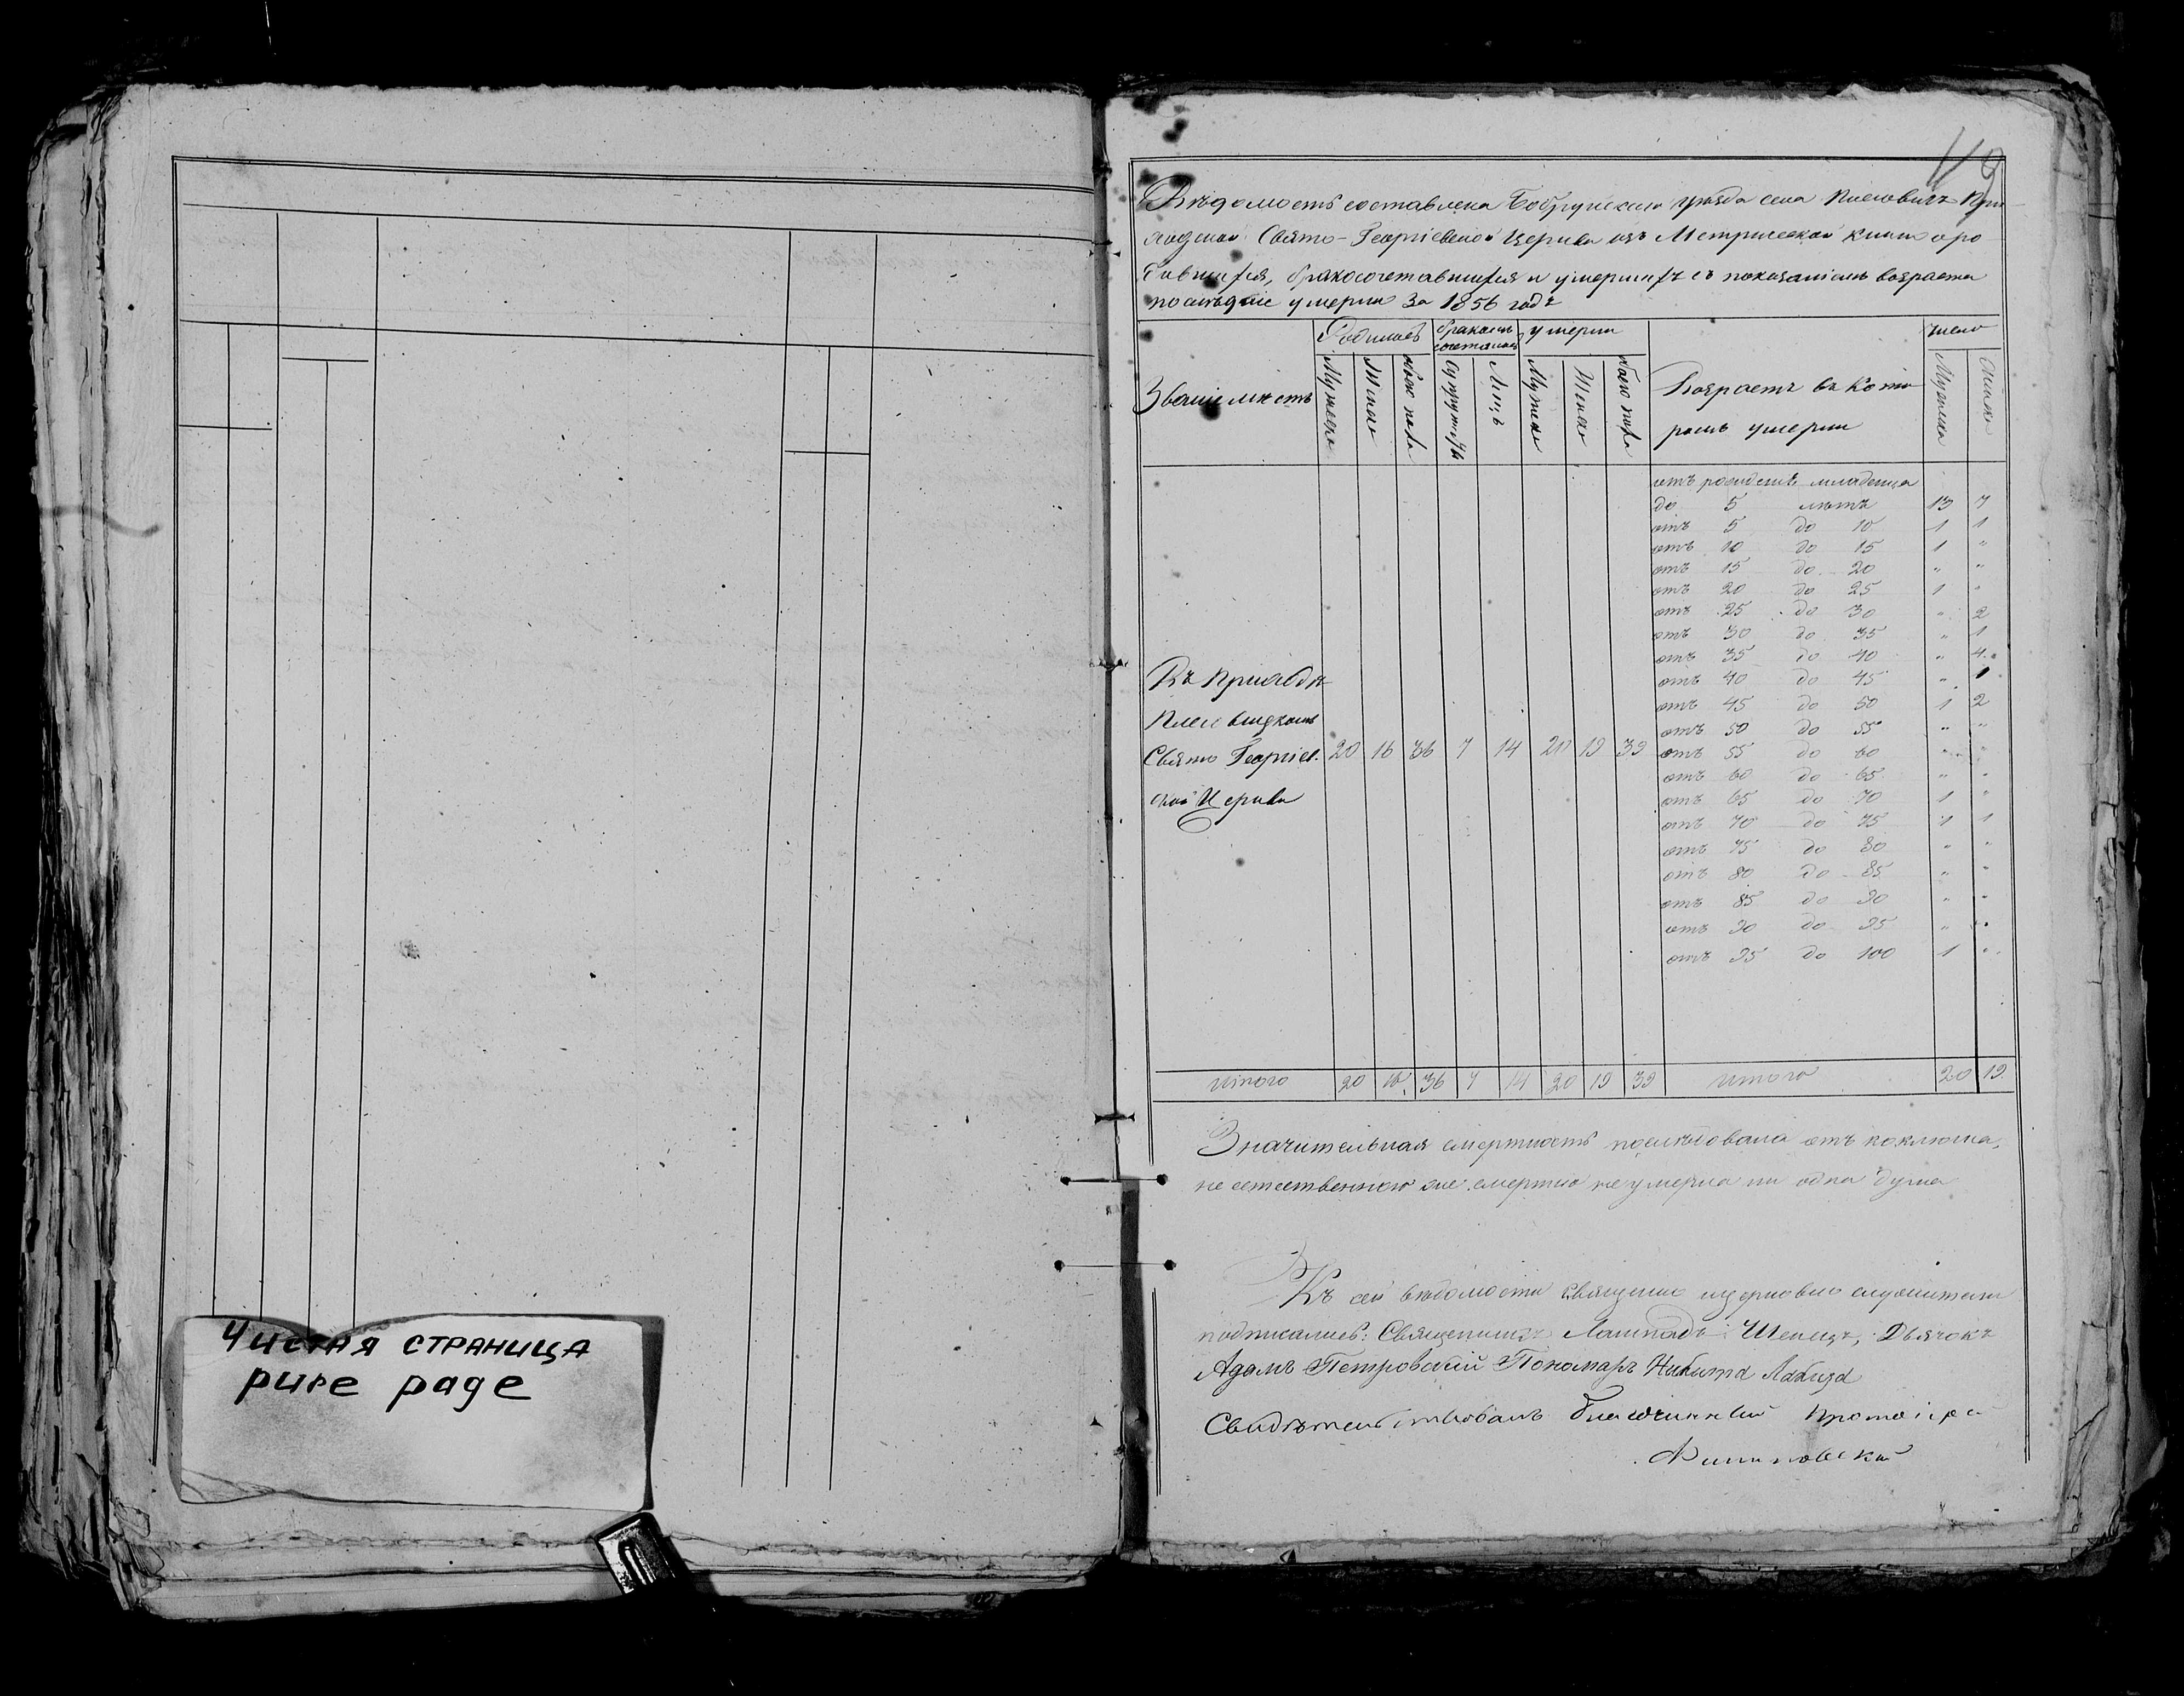 Чистая страница
pure page
119
Вѣдомость составлена Бобруйскаго уѣзда села Плесовичъ При
ходской Свято-Георгіевской Церкви изъ Метрической книги о ро
дившихся, бракосочетавшихся и умершихъ съ показаніемъ возраста
послѣдніе умерли за 1856 годъ
Родилось бракомъ сочетались умерли число
Званіе мѣстъ Мужеска Женска обоего пола Супружествъ Лицъ Мужеска Женска обоего пола Возрастъ въ кото
ромъ умерли Мужеска Женска
отъ рожденія младенца
до 5 лѣтъ 13 7
отъ 5 до 10 1 1
отъ 10 до 15 1 "
отъ 15 до 20 " "
отъ 20 до 25 1 "
отъ 25 до 30 " 2
отъ 30 до 35 " 1
отъ 35 до 40 " 4
отъ 40 до 45 " 1
отъ 45 до 50 1 2
отъ 50 до 55 " "
отъ 55 до 60 " "
отъ 60 до 65 " "
отъ 65 до 70 1 "
отъ 70 до 75 1 1
отъ 75 до 80 " "
отъ 80 до 85 " "
отъ 85 до 90 " "
отъ 90 до 95 " "
отъ 95 до 100 1 "
Въ Приходѣ
Свято Георгіев. 20 16 36 7 14 20 19 39
ской Церкви
Итого 20 16 36 7 14 20 19 39 Итого 20 19
Значительная смертность послѣдовала отъ коклюша,
не естественною же смертію не умерла ни одна душа
Къ сей вѣдомости священно церковно служители
подписались: Священникъ Дьячокъ
Адамъ Петровскій Пономарь Никита
Свидѣтельствовалъ благочинный Протоіерей